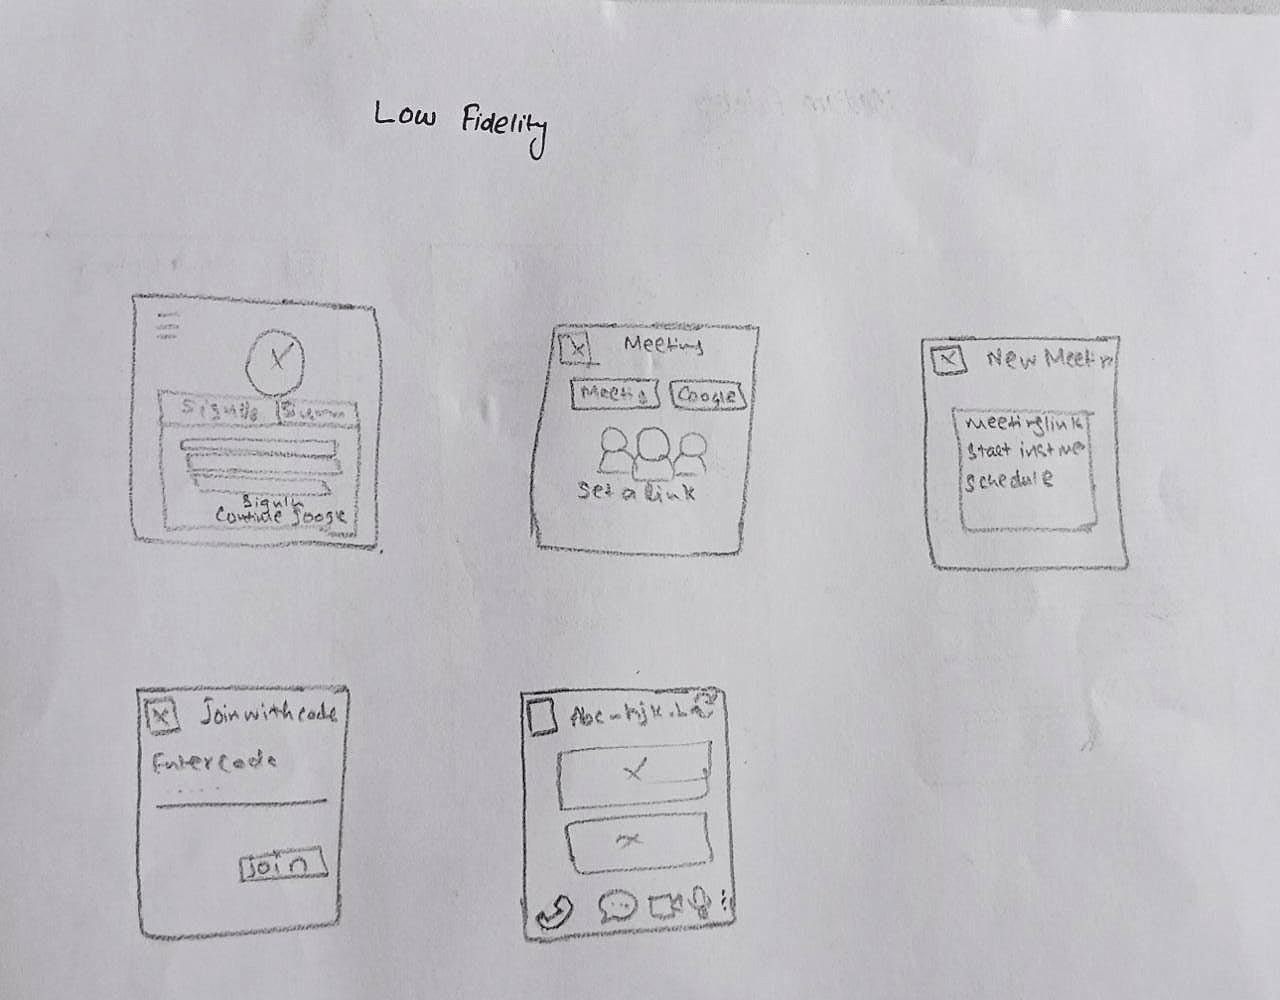 Low Fidelity
SignUp
SignIn
Continue Google
Meeting
Meeting
Google
Set a link
New Meetin
Meeting link
Start inst me
Schedule
Join with code
Enter Code
Join